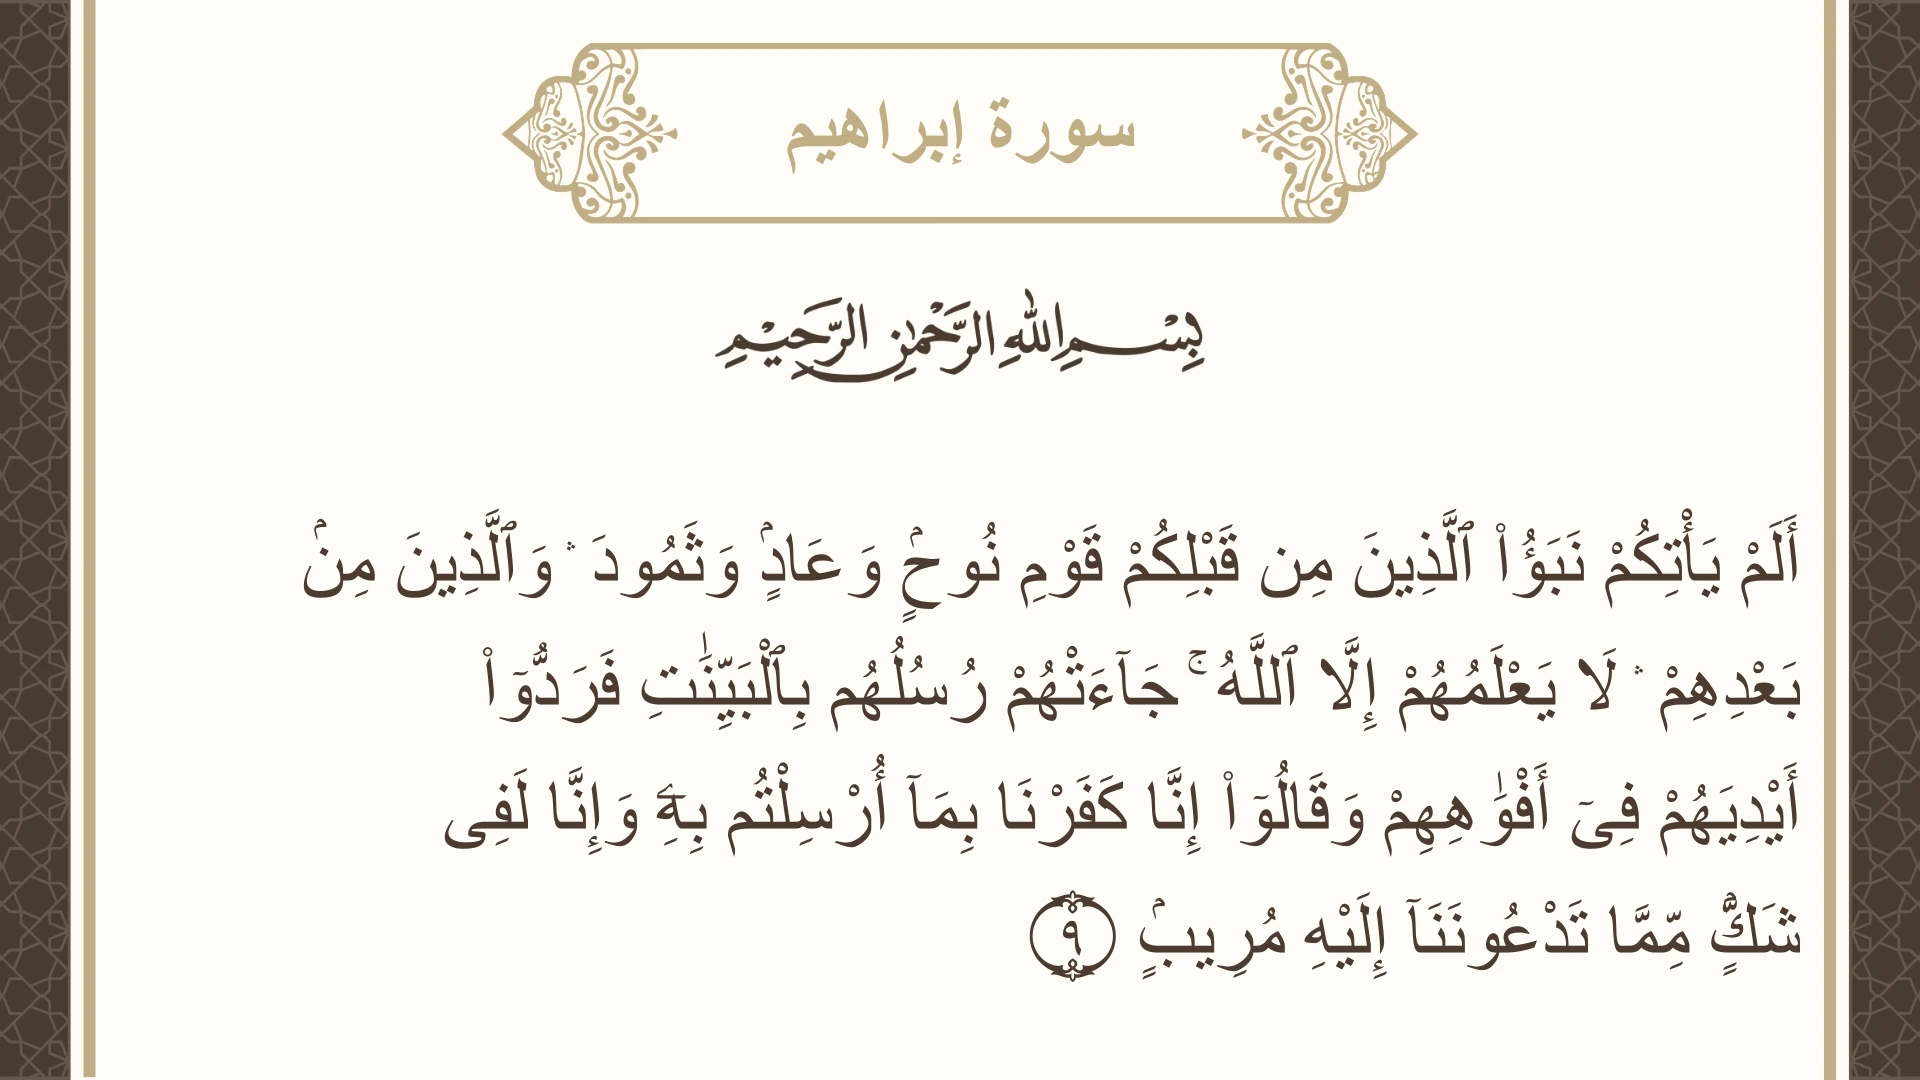 سورة إبراهيم
بِسْمِ اللهِ الرَّحْمٰنِ الرَّحِيْمِ
أَلَمْ يَأْتِكُمْ نَبَؤُا۟ ٱلَّذِينَ مِن قَبْلِكُمْ قَوْمِ نُوحٍۢ وَعَادٍۢ وَثَمُودَ ۛ وَٱلَّذِينَ مِنۢ
بَعْدِهِمْ ۛ لَا يَعْلَمُهُمْ إِلَّا ٱللَّهُ ۚ جَآءَتْهُمْ رُسُلُهُم بِٱلْبَيِّنَٰتِ فَرَدُّوٓا۟
أَيْدِيَهُمْ فِىٓ أَفْوَٰهِهِمْ وَقَالُوٓا۟ إِنَّا كَفَرْنَا بِمَآ أُرْسِلْتُم بِهِۦ وَإِنَّا لَفِى
شَكٍّۢ مِّمَّا تَدْعُونَنَآ إِلَيْهِ مُرِيبٍۢ ٩